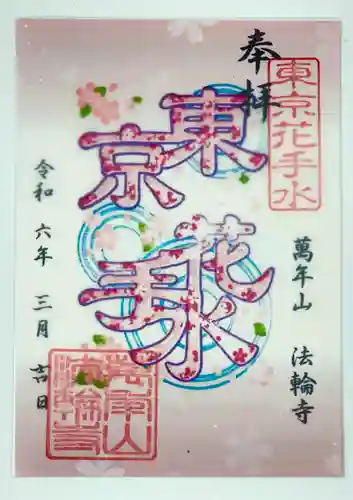 奉拝
東京花手水
東京
花手水
萬年山 法輪寺
令和六年三月吉日
萬年山
法輪寺